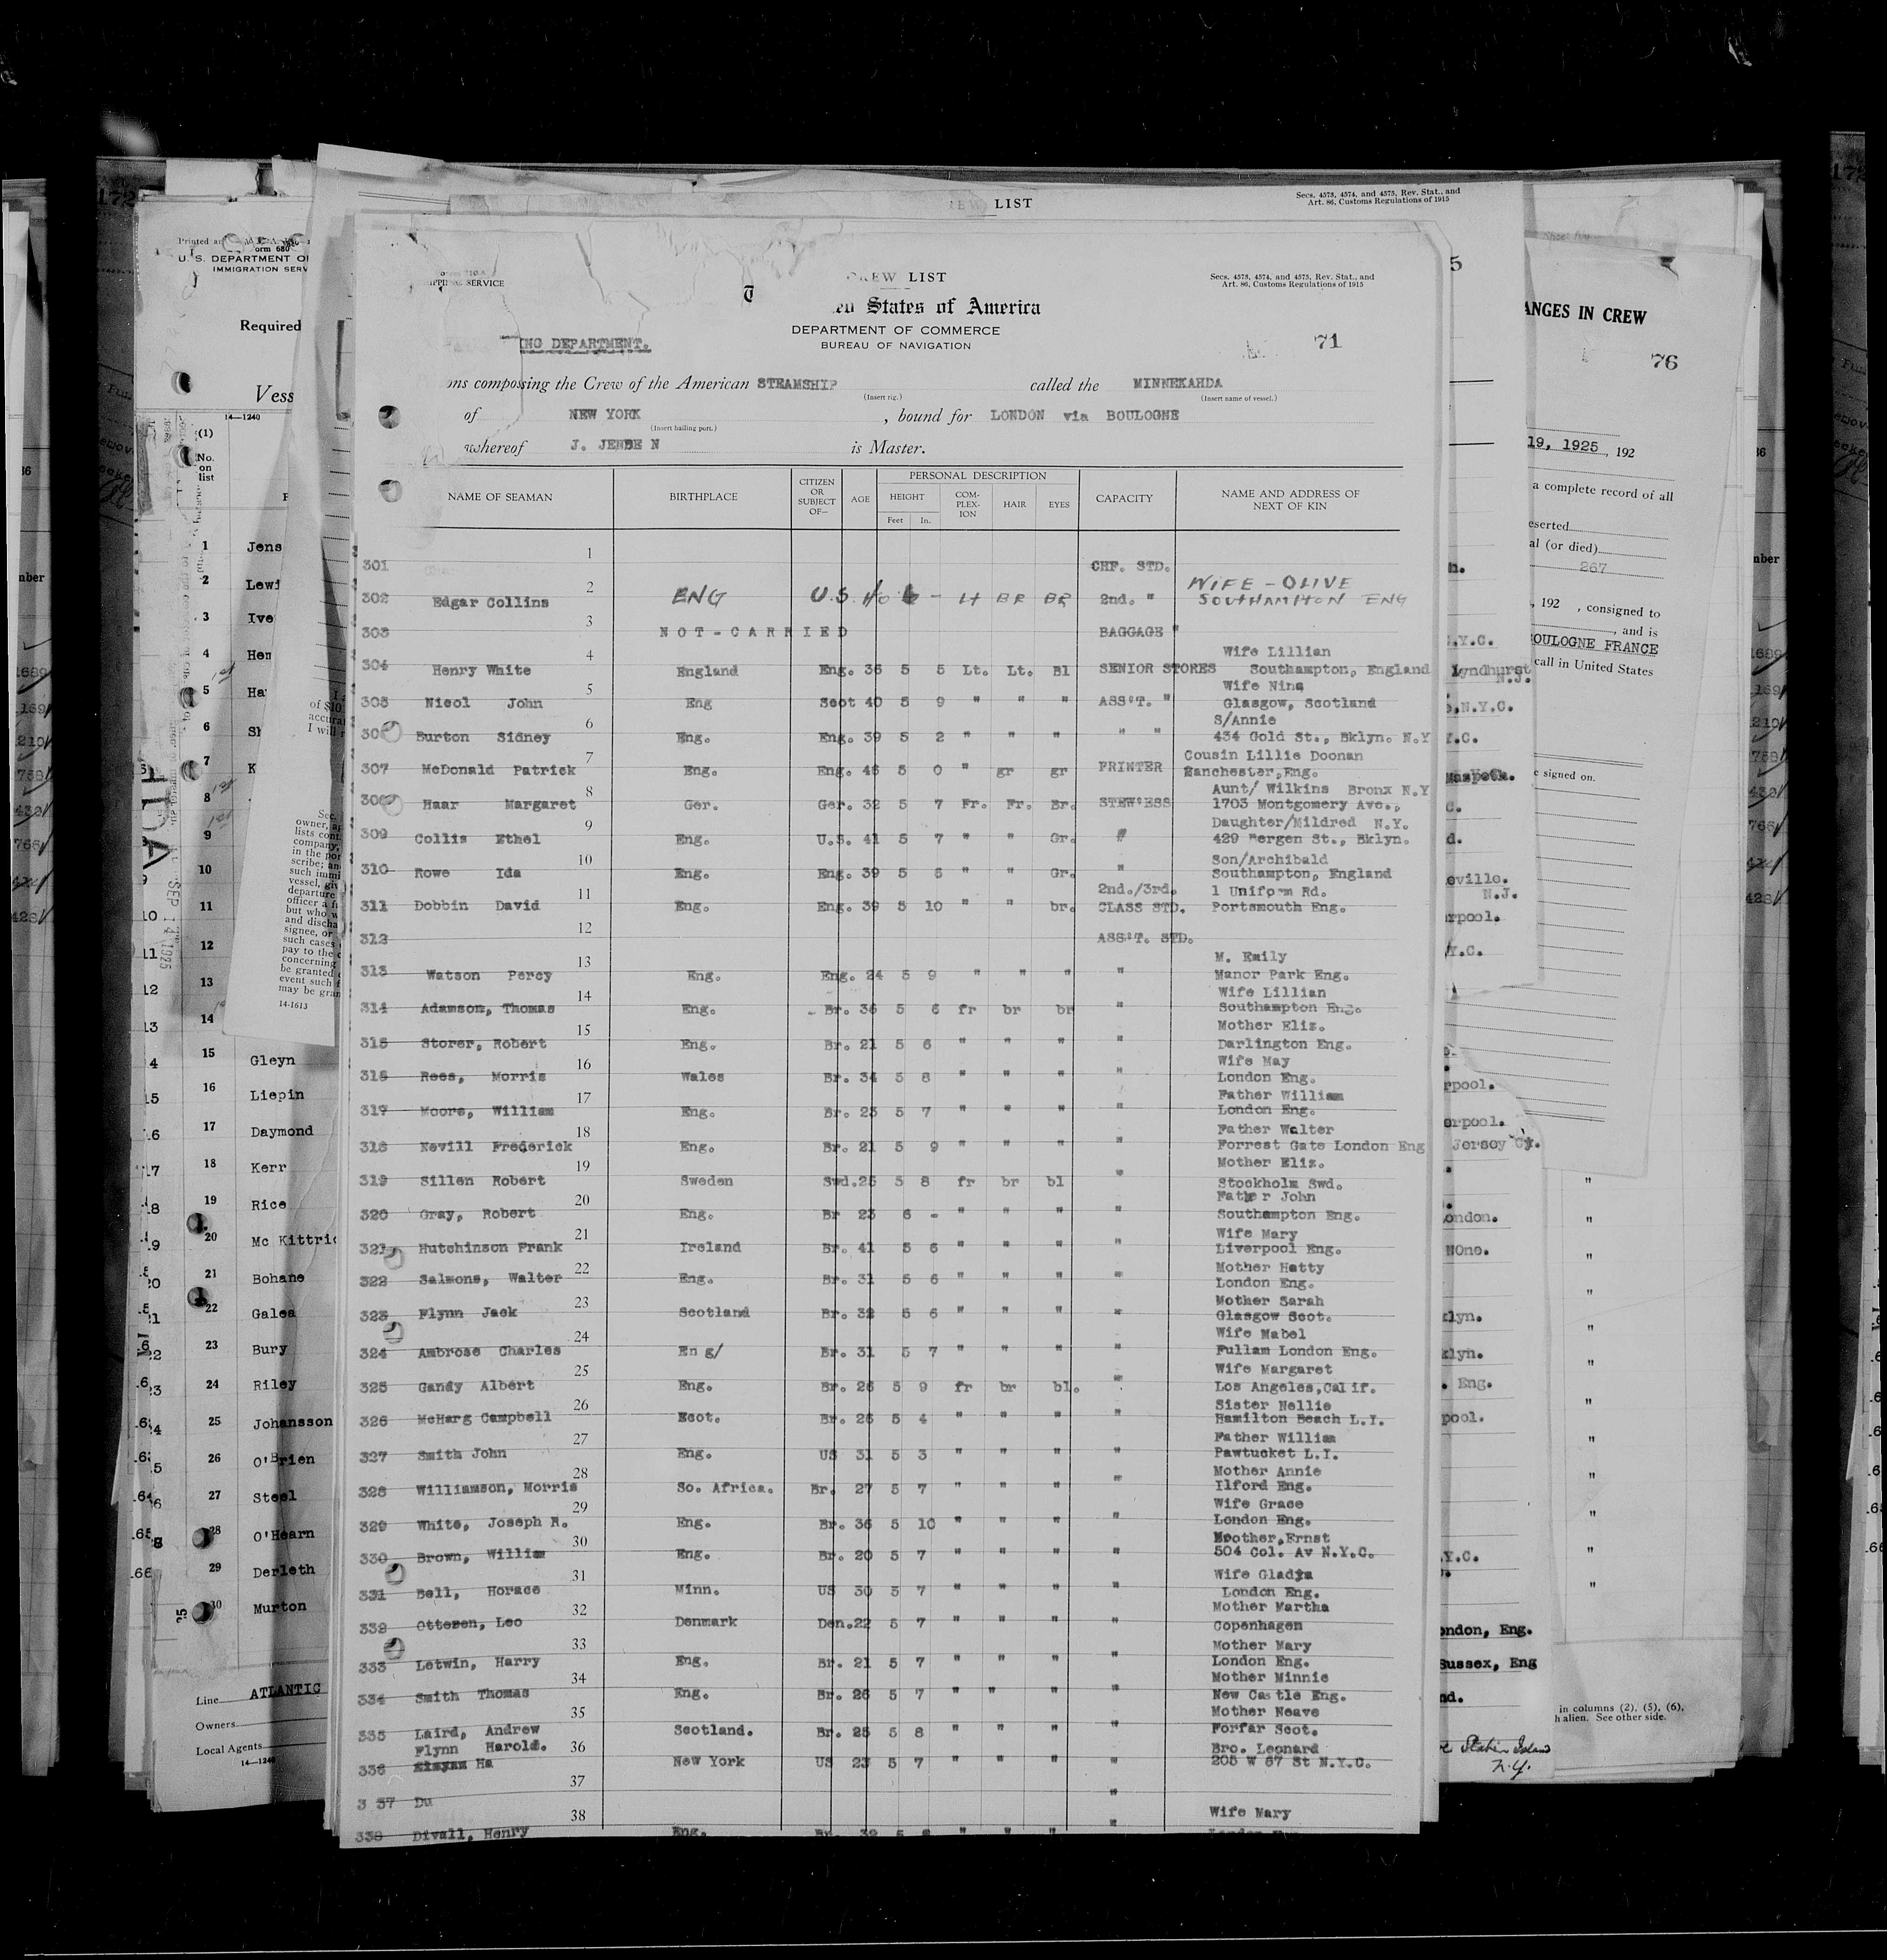 LIST
Secs. 4573, 4574, and 4575, Rev. Stat., and
Art. 86, Customs Regulations of 1915
U. S. DEPARTMENT
IMMIGRATION SERV
Required
Vess
14—1240
CREW LIST
Secs. 4573, 4574, and 4575, Rev. Stat., and
Art. 86, Customs Regulations of 1915
SERVICE
States of America
DEPARTMENT OF COMMERCE
BUREAU OF NAVIGATION
ING DEPARTMENT.
71
ons composing the Crew of the American STEAMSHIP called the MINNEKAHDA
(Insert rig.) (Insert name of vessel.)
of NEW YORK , bound for LONDON via BOULOGNE
(Insert hailing port.)
whereof J. JENSEN is Master.
NAME OF SEAMAN BIRTHPLACE CITIZEN OR SUBJECT OF— AGE PERSONAL DESCRIPTION CAPACITY NAME AND ADDRESS OF NEXT OF KIN
HEIGHT COM-PLEX-ION HAIR EYES
Feet In.
1
301 CHF. STD.
2 WIFE - OLIVE
302 Edgar Collins ENG U.S. 40 6 - LT BR BR 2nd. " SOUTHAMPTON ENG
3
303 NOT-CARRIED BAGGAGE "
4 Wife Lillian
304 Henry White England Eng. 36 5 5 Lt. Lt. Bl SENIOR STORES Southampton, England
5 Wife Nina
305 Nicol John Eng Scot 40 5 9 " " " ASS'T. " Glasgow, Scotland
6 S/Annie
306 Burton Sidney Eng. Eng. 39 5 2 " " " " " 434 Gold St., Bklyn. N.Y
7 Cousin Lillie Doonan
307 McDonald Patrick Eng. Eng. 46 5 0 " gr gr PRINTER Manchester,Eng.
8 Aunt/ Wilkins Bronx N.Y
308 Haar Margaret Ger. Ger. 32 5 7 Fr. Fr. Br. STEW'ESS 1703 Montgomery Ave.,
9 Daughter/Mildred N.Y.
309 Collis Ethel Eng. U.S. 41 5 7 " " Gr. " 429 Bergen St., Bklyn.
10 Son/Archibald
310 Rowe Ida Eng. Eng. 39 5 6 " " Gr. " Southampton, England
11 2nd./3rd. 1 Uniform Rd.
311 Dobbin David Eng. Eng. 39 5 10 " " br. CLASS STD. Portsmouth Eng.
12
312 ASS'T. STD.
13 M. Emily
313 Watson Percy Eng. Eng. 24 5 9 " " " " Manor Park Eng.
14 Wife Lillian
314 Adamson, Thomas Eng. Br. 36 5 6 fr br br " Southampton Eng.
15 Mother Eliz.
315 Storer, Robert Eng. Br. 21 5 6 " " " " Darlington Eng.
16 Wife May
316 Rees, Morris Wales Br. 34 5 8 " " " " London Eng.
17 Father William
317 Moore, William Eng. Br. 23 5 7 " " " " London Eng.
18 Father Walter
318 Nevill Frederick Eng. Br. 21 5 9 " " " " Forrest Gate London Eng
19 Mother Eliz.
319 Sillen Robert Sweden Swd.25 5 8 fr br bl " Stockholm Swd.
20 Father John
320 Gray, Robert Eng. Br 23 6 - " " " " Southampton Eng.
21 Wife Mary
321 Hutchinson Frank Ireland Br. 41 5 6 " " " " Liverpool Eng.
22 Mother Hatty
322 Salmons, Walter Eng. Br. 31 5 6 " " " " London Eng.
23 Mother Sarah
323 Flynn Jack Scotland Br. 32 5 6 " " " " Glasgow Scot.
24 Wife Mabel
324 Ambrose Charles En g/ Br. 31 5 7 " " " " Fullam London Eng.
25 Wife Margaret
325 Gandy Albert Eng. Br. 26 5 9 fr br bl. " Los Angeles,Calif.
26 Sister Nellie
326 McHarg Campbell Scot. Br. 26 5 4 " " " " Hamilton Beach L.I.
27 Father William
327 Smith John Eng. US 31 5 3 " " " " Pawtucket L.I.
28 Mother Annie
328 Williamson, Morris So. Africa. Br. 27 5 7 " " " " Ilford Eng.
29 Wife Grace
329 White, Joseph R. Eng. Br. 36 5 10 " " " " London Eng.
30 Brother,Ernst
330 Brown, William Eng. Br. 20 5 7 " " " " 504 Col. Av N.Y.C.
31 Wife Gladys
331 Bell, Horace Minn. US 30 5 7 " " " " London Eng.
32 Mother Martha
332 Ottesen, Leo Denmark Den.22 5 7 " " " " Copenhagen
33 Mother Mary
333 Letwin, Harry Eng. Br. 21 5 7 " " " " London Eng.
34 Mother Minnie
334 Smith Thomas Eng. Br. 26 5 7 " " " " New Castle Eng.
35 Mother Neave
335 Laird, Andrew Scotland. Br. 25 5 8 " " " " Forfar Scot.
Flynn Harold. 36 Bro. Leonard
336 New York US 23 5 7 " " " " 205 W 67 St N.Y.C.
37
3 37 Du "
38 Wife Mary
338 Divall, Henry Eng.
(1)
No. on list
1 Jens
2 Lewi
3 Ive
4
5 Ha
6
7 K
8
9
10
11
12
13
14
15 Gleyn
16 Liepin
17 Daymond
18 Kerr
19 Rice
20 Mc Kittric
21 Bohane
22 Galea
23 Bury
24 Riley
25 Johansson
26 O'Brien
27 Steel
28 O'Hearn
29 Derleth
30 Murton
Line ATLANTIC
Owners
Local Agents
14—1240
SEP 14 1925
14-1613
ANGES IN CREW
76
19, 1925 , 192
a complete record of all
eserted
al (or died)
267
, 192 , consigned to
, and is
BOULOGNE FRANCE
call in United States
signed on.
Lyndhurst
N.J.
N.Y.C.
Maspeth.
eville.
N.J.
rpool.
Y.C.
rpool.
erpool.
Jersey Cy.
ondon.
NOne.
klyn.
klyn.
. Eng.
pool.
Y.C.
ondon, Eng.
Sussex, Eng
nd.
in columns (2), (5), (6),
h alien. See other side.
Staten Island
N.Y.